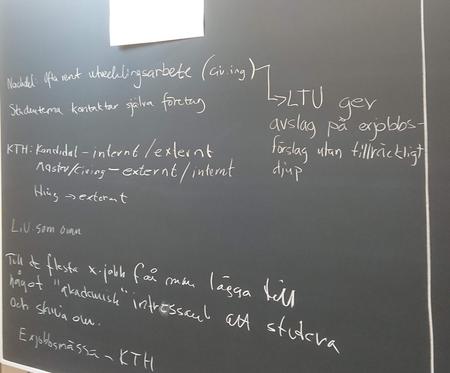 Nackdel: Ofta rent utvecklingsarbete (Civ.ing)
Studenterna kontaktar själva företag
→ LTU ger
avslag på exjobbs-
förslag utan tillräckligt
djup
KTH: Kandidat - internt/externt
Master/Civing - externt/internt
Hing → externt
LiU - som ovan
Till de flesta x-jobb får man lägga till
något "akademisk" intressant att studera
och skriva om.
Exjobbsmässa - KTH